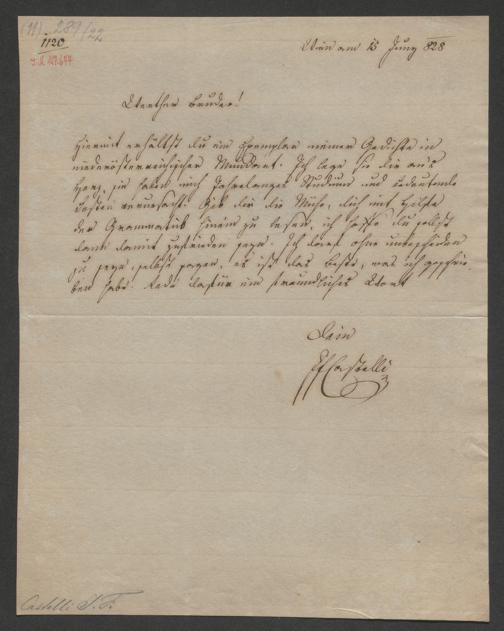 (11) 289/22
1120
I.N. 119.644
Wien am 15 Juny 828
Werther Bruder!
Hiermit erhältst du ein Exemplar meiner Gedichte in
niederösterreichischer Mundart. Ich lege sie dir ans
Herz, sie haben mich Jahrelanges Studium und bedeutende
Kosten verursacht. Gib dir die Mühe, dich mit Hülfe
der Grammatik hinein zu lesen, ich hoffe du sollst
dann damit zufrieden seyn. Ich darf ohne unbescheiden
zu seyn, selbst sagen, es ist das Beste, was ich geschrie-
ben habe. Rede dafür ein freundliches Wort
Dein
IFCastelli
Castelli I. F.